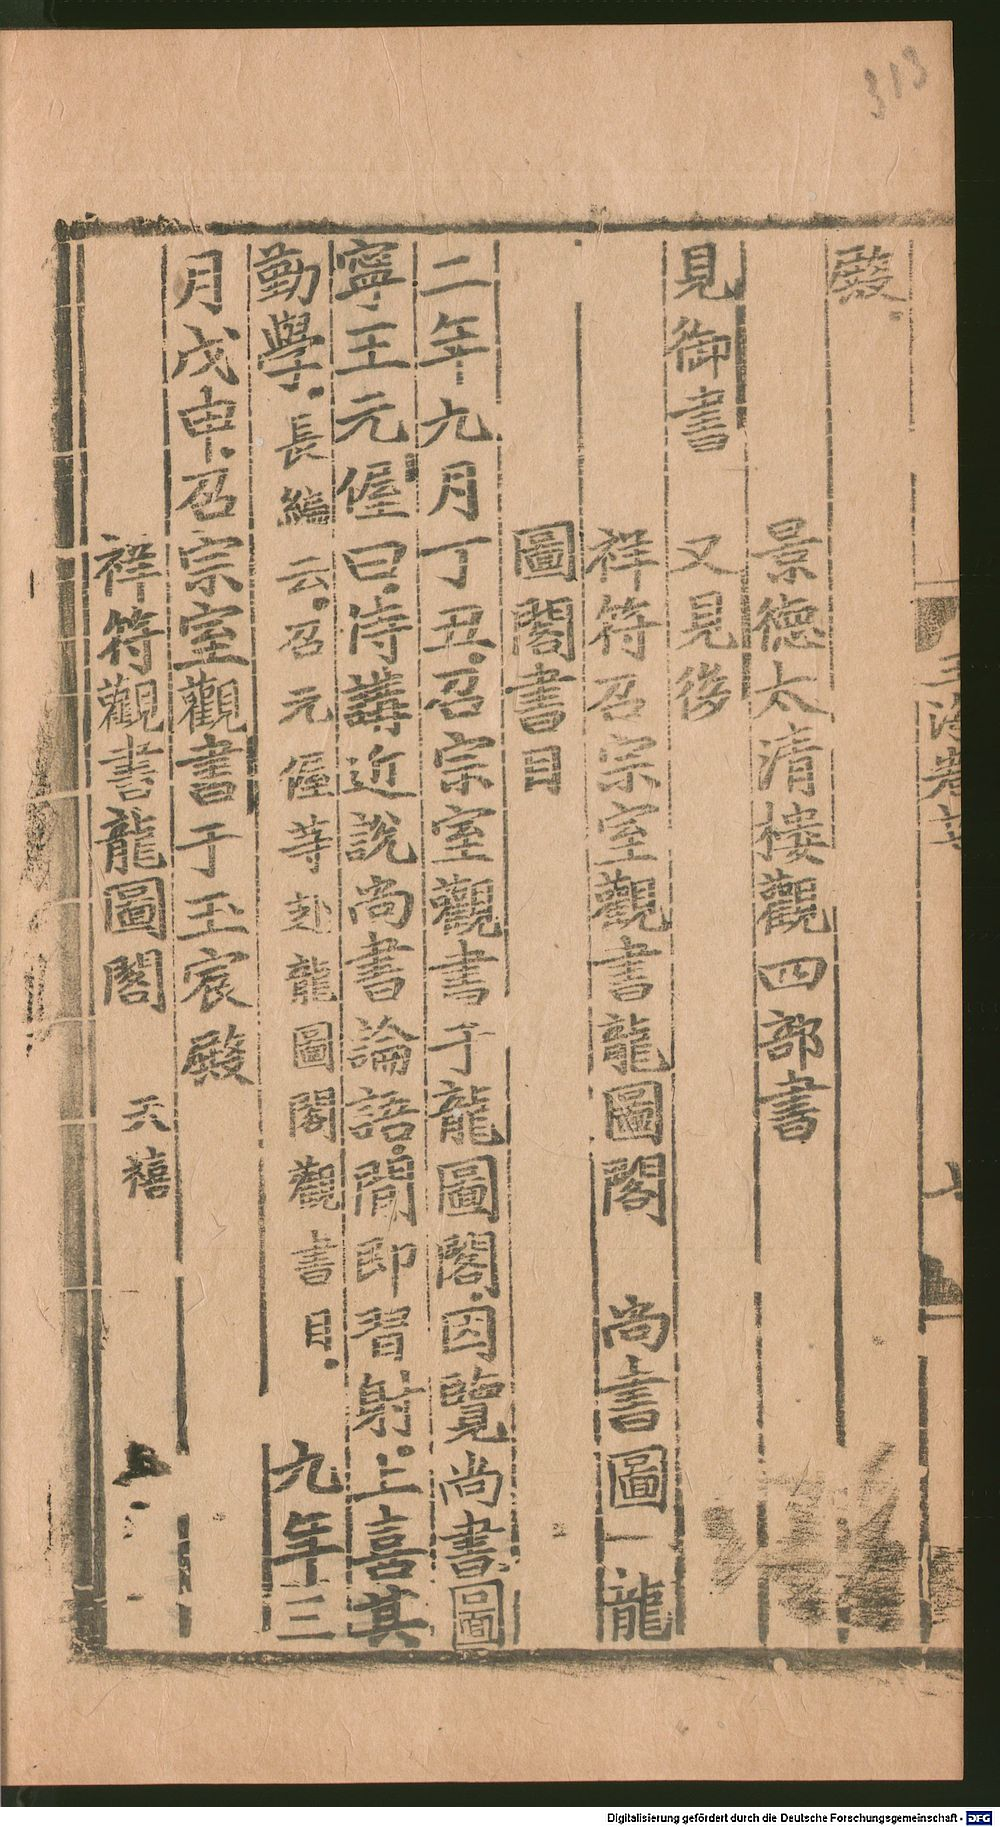 313
殿
景德太清樓觀四部書
見御書 又見後
祥符召宗室觀書龍圖閣 尚書圖 龍
圖閣書目
二年九月丁丑召宗室觀書于龍圖閣因覽尚書圖
寧王元偓曰侍講近說尚書論語間即習射上喜其
勤學長編云召元偓等赴龍圖閣觀書目 九年三
月戊申召宗室觀書于玉宸殿
祥符觀書龍圖閣 天禧
Digitalisierung gefördert durch die Deutsche Forschungsgemeinschaft - DFG